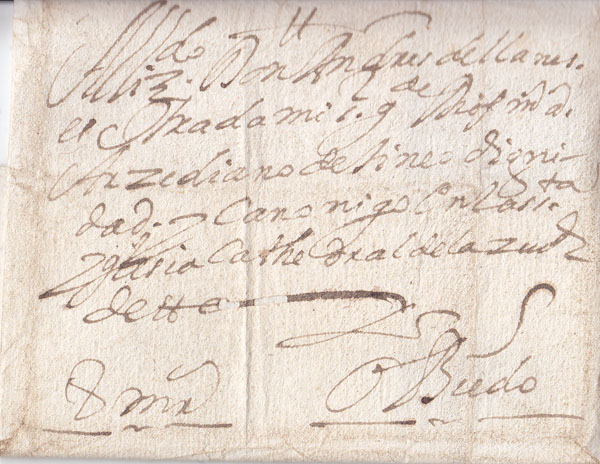 Al Liz.do Don Andres de llanes
estrada mi s.r q Dios m.s a.s
Arzediano de tineo digni-
dad y Canonigo en la s.ta
Yglesia Cathedral de la ziud
de
Obiedo